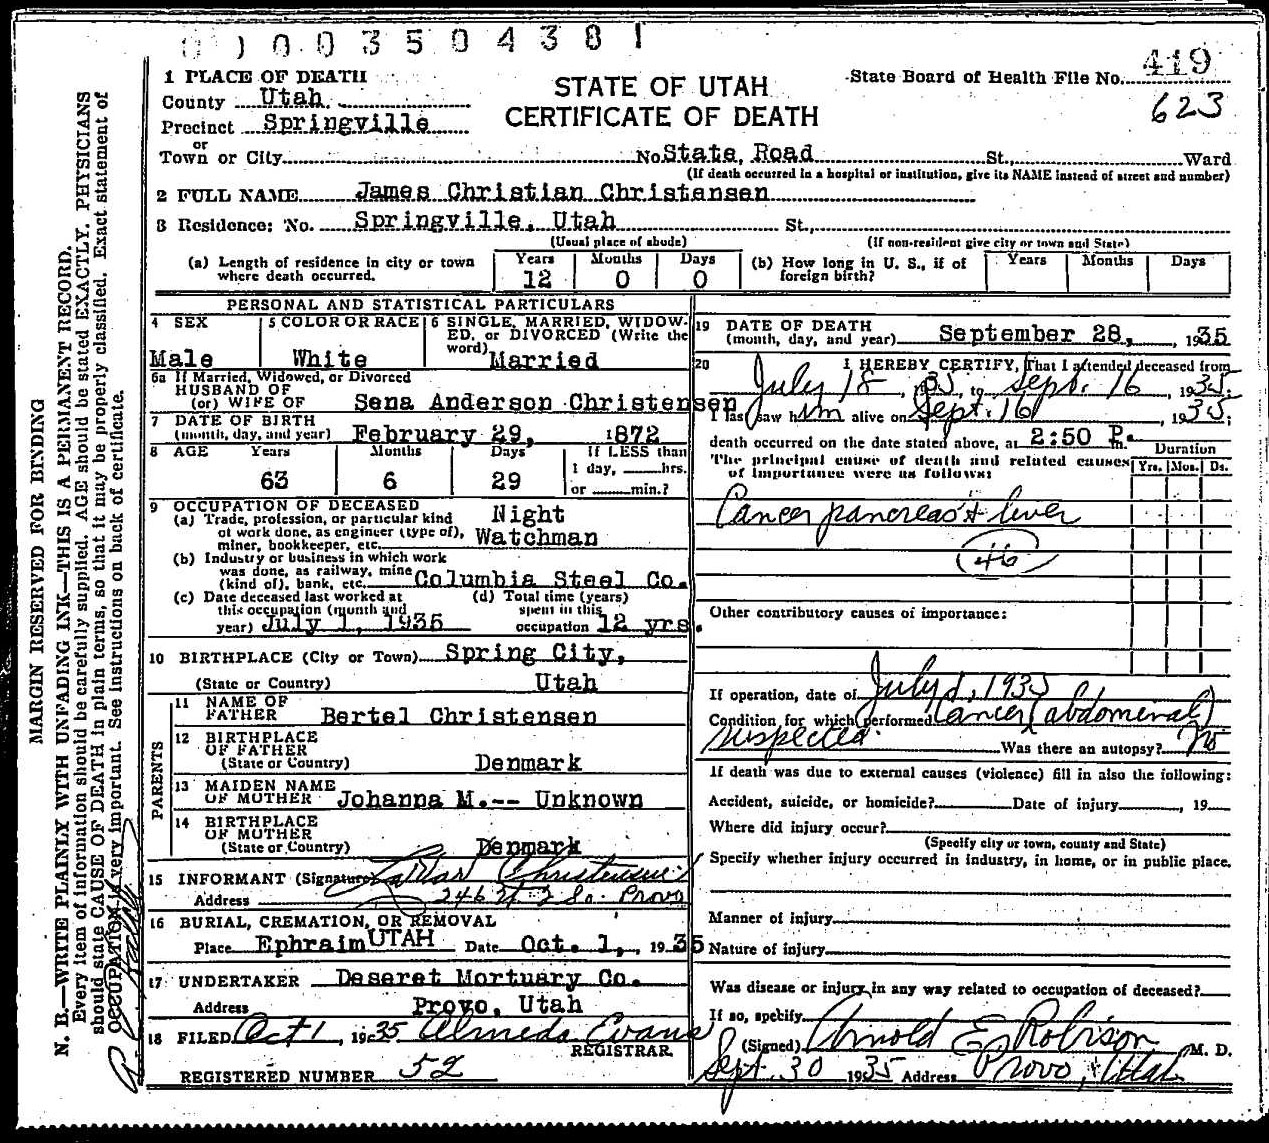 0100350438 1
1 PLACE OF DEATH
County Utah
Precinct Springville
or
Town or City No. State Road St., Ward
(If death occurred in a hospital or institution, give its NAME instead of street and number)
STATE OF UTAH
CERTIFICATE OF DEATH
State Board of Health File No. 419
623
2 FULL NAME James Christian Christensen
3 Residence: No. Springville, Utah St.,
(Usual place of abode) (If non-resident give city or town and State)
(a) Length of residence in city or town where death occurred. Years 12 Months 0 Days 0
(b) How long in U. S., if of foreign birth? Years Months Days
PERSONAL AND STATISTICAL PARTICULARS
4 SEX Male
5 COLOR OR RACE White
6 SINGLE, MARRIED, WIDOW-
ED, or DIVORCED (Write the
word) Married
6a If Married, Widowed, or Divorced
HUSBAND OF
(or) WIFE OF Sena Anderson Christensen
7 DATE OF BIRTH
(month, day, and year) February 29, 1872
8 AGE Years 63 Months 6 Days 29
If LESS than
1 day, hrs.
or min.?
9 OCCUPATION OF DECEASED
(a) Trade, profession, or particular kind
of work done, as engineer (type of),
miner, bookkeeper, etc. Night Watchman
(b) Industry or business in which work
was done, as railway, mine
(kind of), bank, etc. Columbia Steel Co.
(c) Date deceased last worked at
this occupation (month and
year) July 1, 1935
(d) Total time (years)
spent in this
occupation 12 yrs.
10 BIRTHPLACE (City or Town) Spring City,
(State or Country) Utah
PARENTS
11 NAME OF
FATHER Bertel Christensen
12 BIRTHPLACE
OF FATHER
(State or Country) Denmark
13 MAIDEN NAME
OF MOTHER Johanna M.-- Unknown
14 BIRTHPLACE
OF MOTHER
(State or Country) Denmark
15 INFORMANT (Signature) Christensen
Address 246 So. Provo
16 BURIAL, CREMATION, OR REMOVAL
Place Ephraim UTAH Date Oct. 1, 1935
17 UNDERTAKER Deseret Mortuary Co.
Address Provo, Utah
18 FILED Oct 1, 1935 Almeda Evans
REGISTRAR
REGISTERED NUMBER 52
19 DATE OF DEATH
(month, day, and year) September 28, 1935
20 I HEREBY CERTIFY, That I attended deceased from
July 18, 1935, to Sept. 16, 1935.
I last saw him alive on Sept. 16, 1935;
death occurred on the date stated above, at 2:50 P. m.
The principal cause of death and related causes
of importance were as follows:
Duration
Yrs. Mos. Ds.
Cancer pancreas & liver
46
Other contributory causes of importance:
If operation, date of July 1, 1935
Condition for which performed Cancer (abdominal)
suspected. Was there an autopsy? No
If death was due to external causes (violence) fill in also the following:
Accident, suicide, or homicide? Date of injury , 19
Where did injury occur?
(Specify city or town, county and State)
Specify whether injury occurred in industry, in home, or in public place.
Manner of injury
Nature of injury
Was disease or injury in any way related to occupation of deceased?
If so, specify
(Signed) Arnold E. Robison M. D.
Sept 30 1935 Address Provo, Utah
MARGIN RESERVED FOR BINDING
N. B.—WRITE PLAINLY WITH UNFADING INK—THIS IS A PERMANENT RECORD.
Every item of information should be carefully supplied. AGE should be stated EXACTLY. PHYSICIANS
should state CAUSE OF DEATH in plain terms, so that it may be properly classified. Exact statement of
OCCUPATION is very important. See instructions on back of certificate.